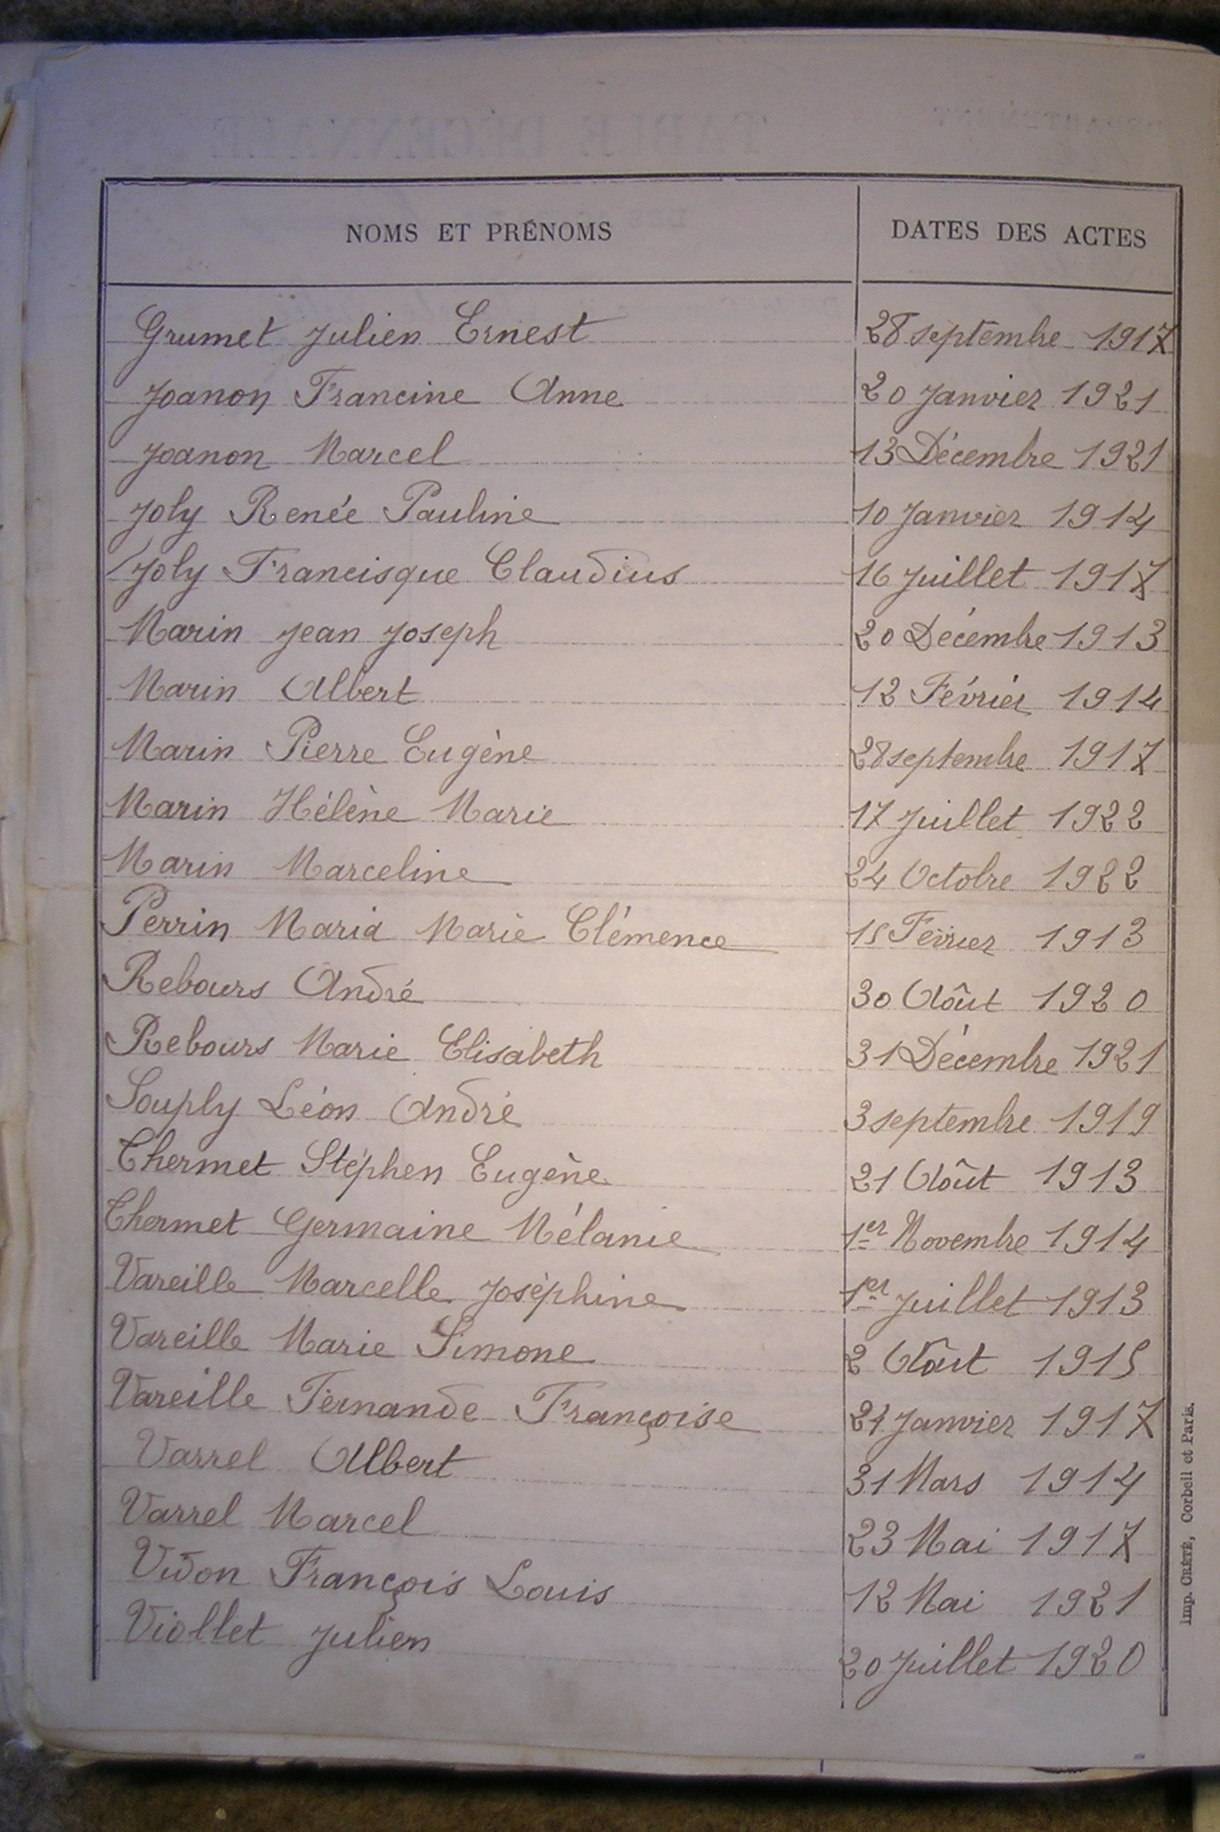 NOMS ET PRÉNOMS DATES DES ACTES
Grumet Julien Ernest 28 septembre 1917
Joanon Francine Anne 20 Janvier 1921
Joanon Marcel 13 Décembre 1921
Joly Renée Pauline 10 Janvier 1914
Joly Francisque Claudius 16 Juillet 1917
Marin Jean Joseph 20 Décembre 1913
Marin Albert 12 Février 1914
Marin Pierre Eugène 28 septembre 1917
Marin Hélène Marie 17 Juillet 1922
Marin Marceline 24 Octobre 1922
Perrin Maria Marie Clémence 15 Février 1913
Rebours André 30 Août 1920
Rebours Marie Elisabeth 31 Décembre 1921
Souply Léon André 3 septembre 1919
Thermet Stéphen Eugène 21 Août 1913
Thermet Germaine Mélanie 1er Novembre 1914
Vareille Marcelle Joséphine 1er Juillet 1913
Vareille Marie Simone 2 Août 1915
Vareille Fernande Françoise 21 Janvier 1917
Varrel Albert 31 Mars 1914
Varrel Marcel 23 Mai 1917
Vidon François Louis 12 Mai 1921
Viollet Julien 20 Juillet 1920
Imp. CRÉTÉ, Corbeil et Paris.